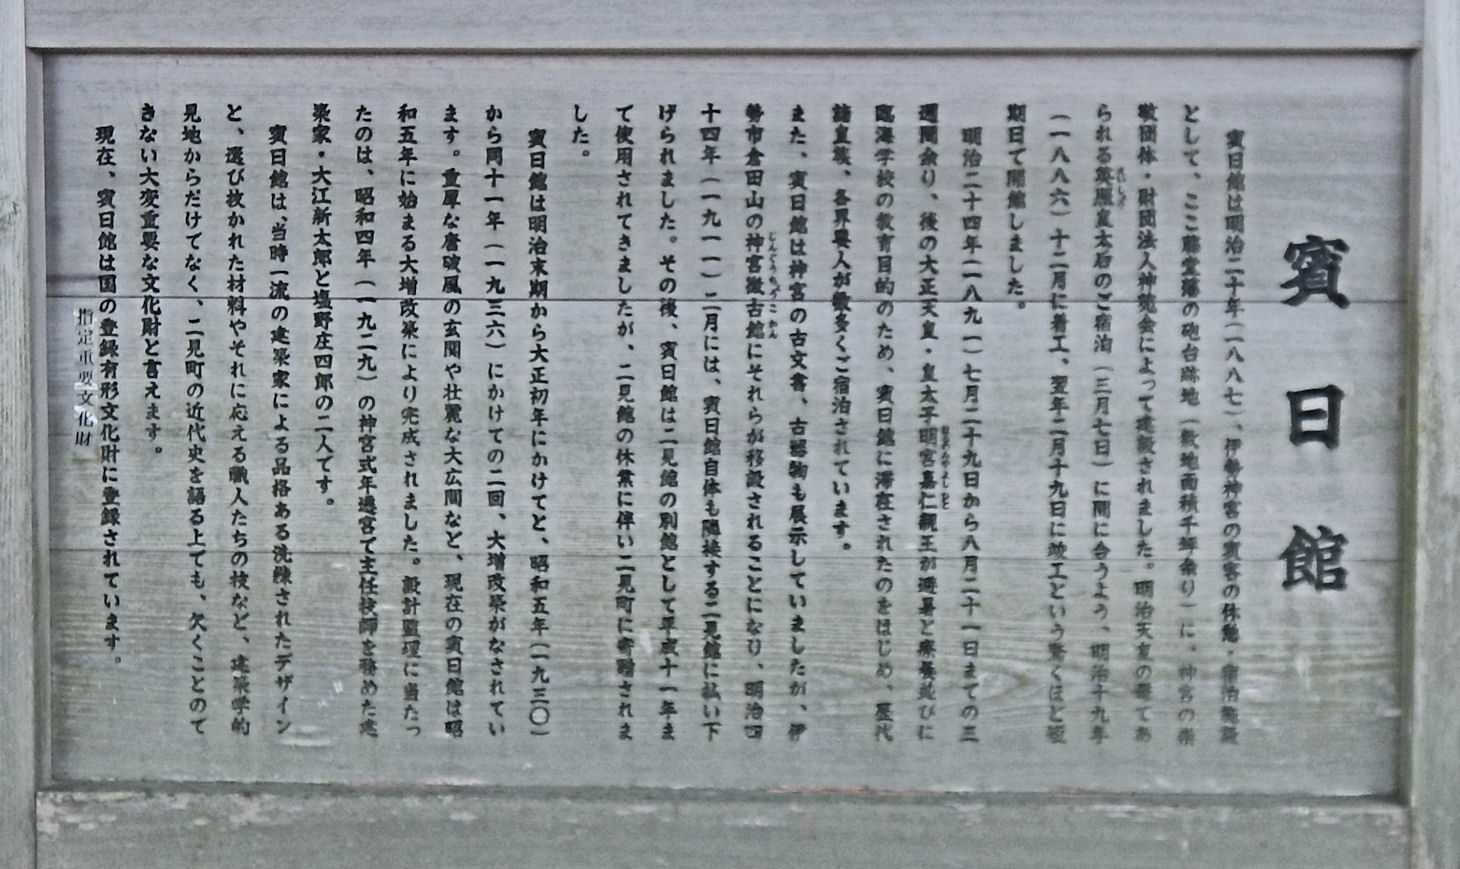 賓日館
賓日館は明治二十年(一八八七)、伊勢神宮の賓客の休憩・宿泊施設
として、ここ藤堂藩の砲台跡地(敷地面積千坪余り)に、神宮の崇
敬団体・財団法人神苑会によって建設されました。明治天皇の母であ
られる英照皇太后のご宿泊(三月七日)に間に合うよう、明治十九年
(一八八六)十二月に着工、翌年二月十九日に竣工という驚くほど短
期日で開館しました。
明治二十四年(一八九一)七月二十九日から八月二十一日までの三
週間余り、後の大正天皇・皇太子明宮嘉仁親王が避暑と療養並びに
臨海学校の教育目的のため、賓日館に滞在されたのをはじめ、歴代
諸皇族、各界要人が数多くご宿泊されています。
また、賓日館は神宮の古文書、古器物も展示していましたが、伊
勢市倉田山の神宮徴古館にそれらが移設されることになり、明治四
十四年(一九一一)二月には、賓日館自体も隣接する二見館に払い下
げられました。その後、賓日館は二見館の別館として平成十一年ま
で使用されてきましたが、二見館の休業に伴い二見町に寄贈されま
した。
賓日館は明治末期から大正初年にかけてと、昭和五年(一九三〇)
から同十一年(一九三六)にかけての二回、大増改築がなされてい
ます。重厚な唐破風の玄関や壮麗な大広間など、現在の賓日館は昭
和五年に始まる大増改築により完成されました。設計監理に当たっ
たのは、昭和四年(一九二九)の神宮式年遷宮で主任技師を務めた建
築家・大江新太郎と塩野庄四郎の二人です。
賓日館は、当時一流の建築家による品格ある洗練されたデザイン
と、選び抜かれた材料やそれに応える職人たちの技など、建築学的
見地からだけでなく、二見町の近代史を語る上でも、欠くことので
きない大変重要な文化財と言えます。
現在、賓日館は国の登録有形文化財に登録されています。
指定重要文化財